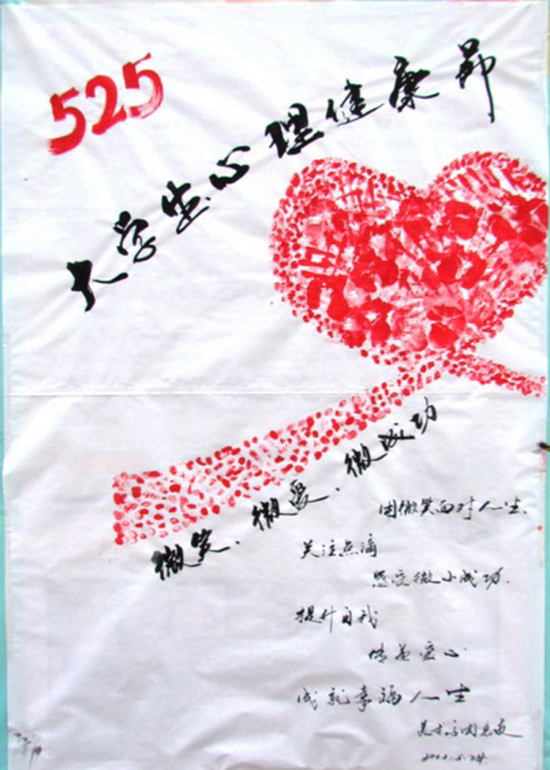 525
大学生心理健康节
微笑、微爱、微成功
用微笑面对人生.
关注点滴
感受微小成功.
提升自我
传递爱心
成就幸福人生